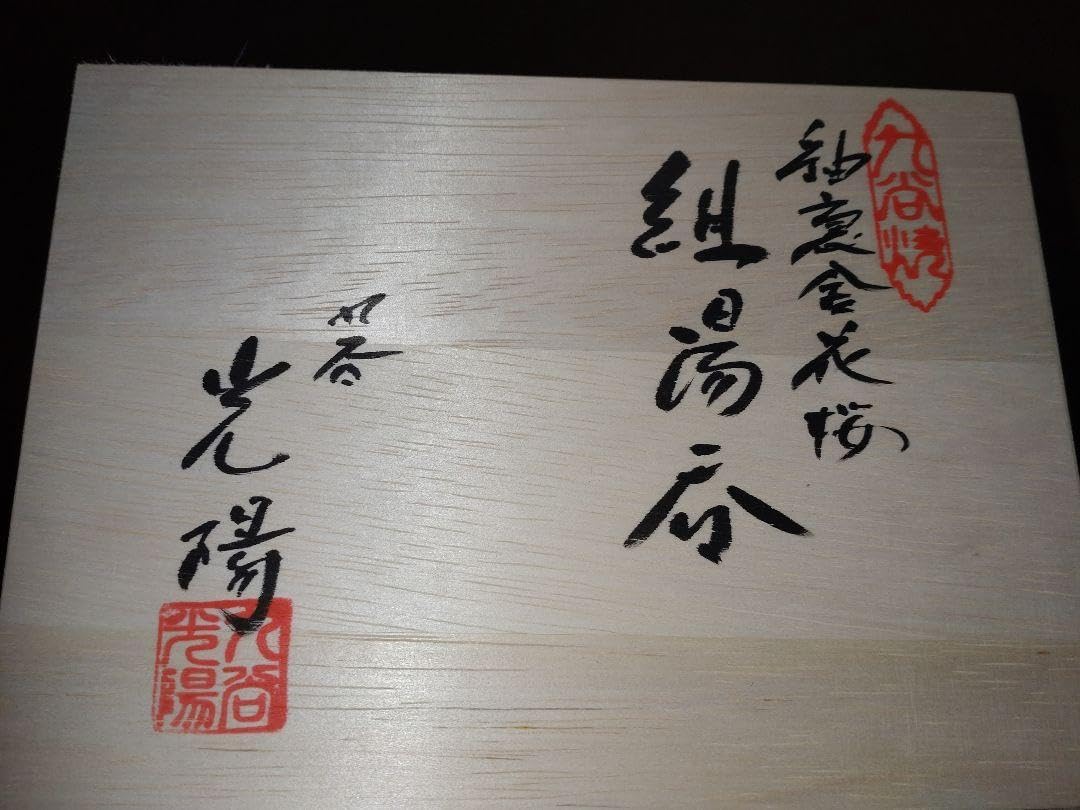 九谷焼
釉花桜
組湯呑
九谷
光陽
九谷
光陽